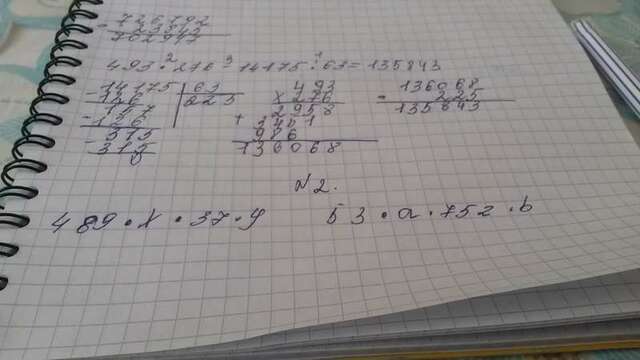 493 · 276 - 14175 : 63 = 135843
14175 | 63
126 | 225
157
126
315
315
0
493
× 276
2958
+ 3451
986
136068
- 136068
225
135843
N2.
489 · x · 37 · y
53 · a · 752 · b